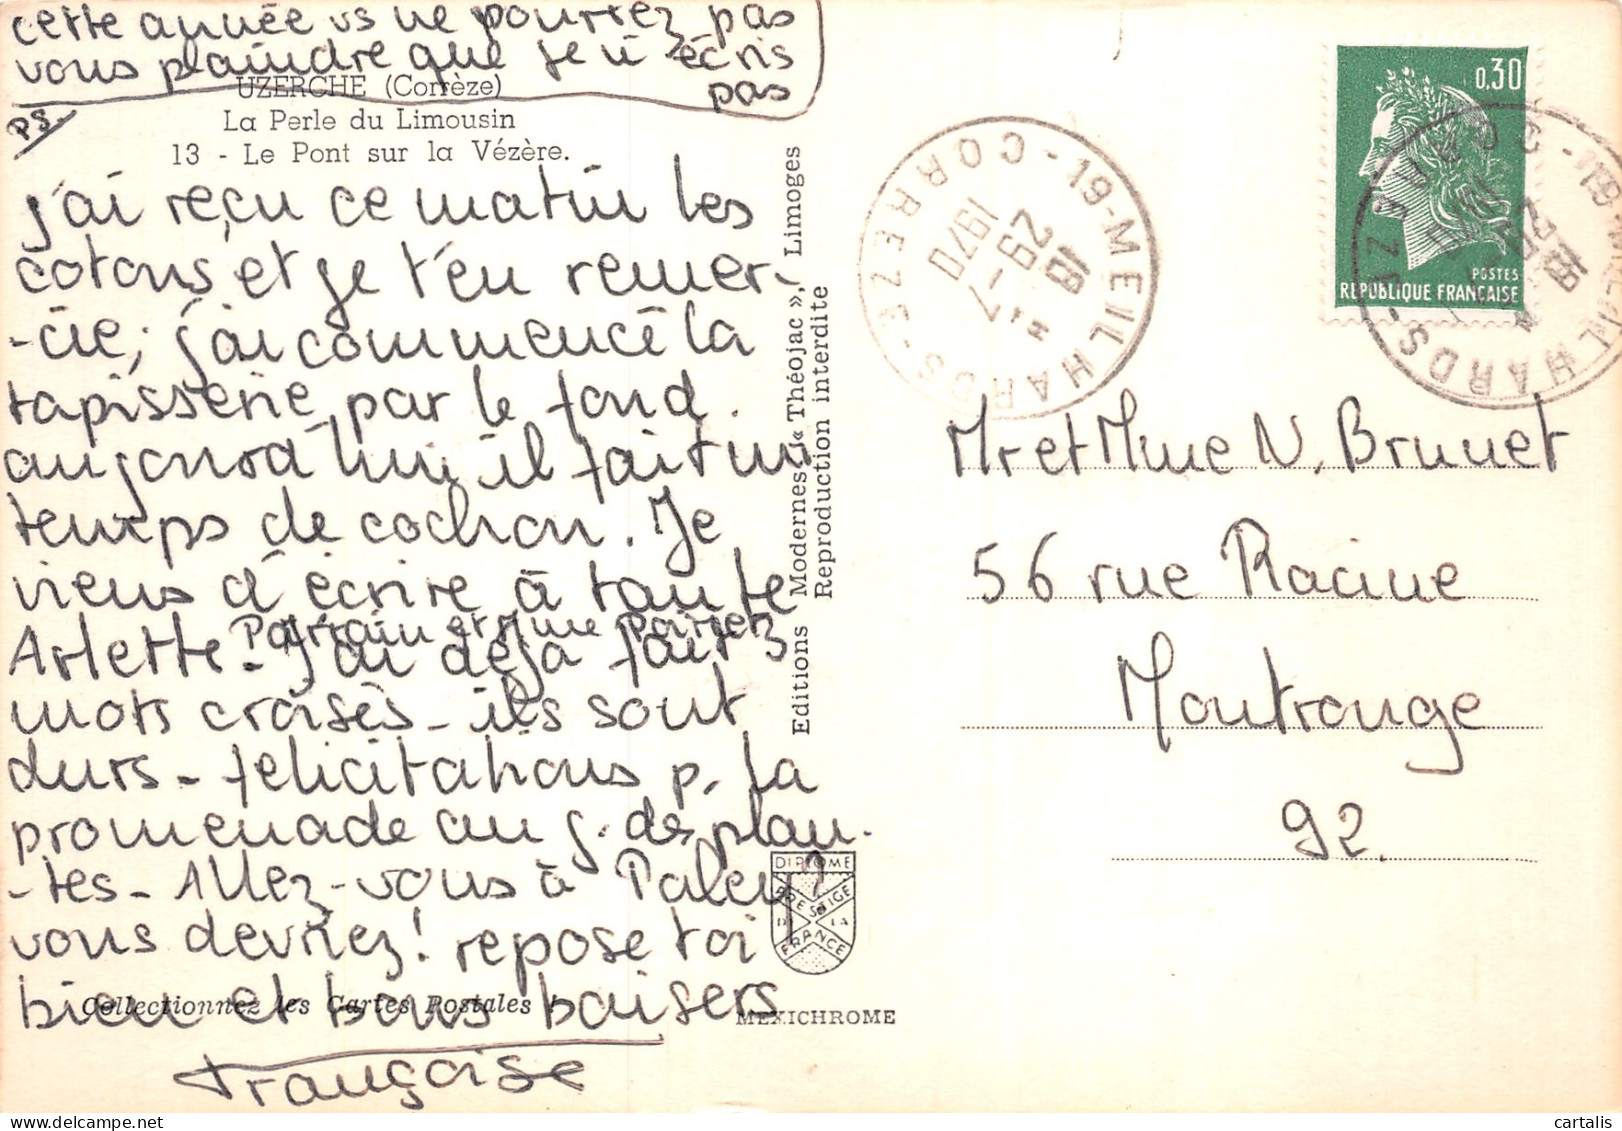 cette année vs ne pourrez pas
vous plaindre que je n'écris
pas
PS.
UZERCHE (Corrèze)
La Perle du Limousin
13 - Le Pont sur la Vézère.
j'ai reçu ce matin les
cotons et je t'en remer-
-cie, j'ai commencé la
tapisserie par le fond.
aujourd'hui il fait un
temps de cochon. Je
viens d'écrire à tante
Arlette - Parrain et Mme
J'ai déjà fait 3
mots croisés - ils sont
durs - félicitations p. la
promenade au j. des plan-
-tes - Allez-vous à Paleu?
vous devriez! repose toi
bien et bons baisers
Françoise
Collectionnez les Cartes Postales !
Editions Modernes « Théojac », Limoges
Reproduction interdite
DIPLOME
PRESTIGE
DE LA
FRANCE
MEXICHROME
19-MEILHARDS-CORREZE
18 H
29-7
1970
0,30
POSTES
REPUBLIQUE FRANÇAISE
19-MEILHARDS-CORREZE
Mr et Mme N. Brunet
56 rue Racine
Montrouge
92.
cartalis